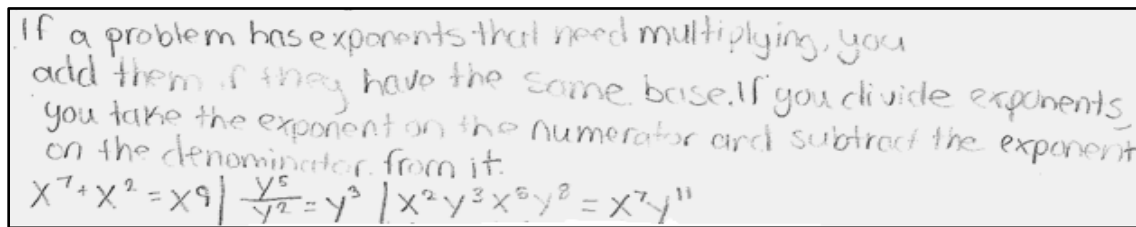 If a problem has exponents that need multiplying, you
add them if they have the same base. If you divide exponents,
you take the exponent on the numerator and subtract the exponent
on the denominator from it.
x⁷ + x² = x9 | y⁵/y² = y³ | x²y³x⁵y⁸ = x⁷y¹¹